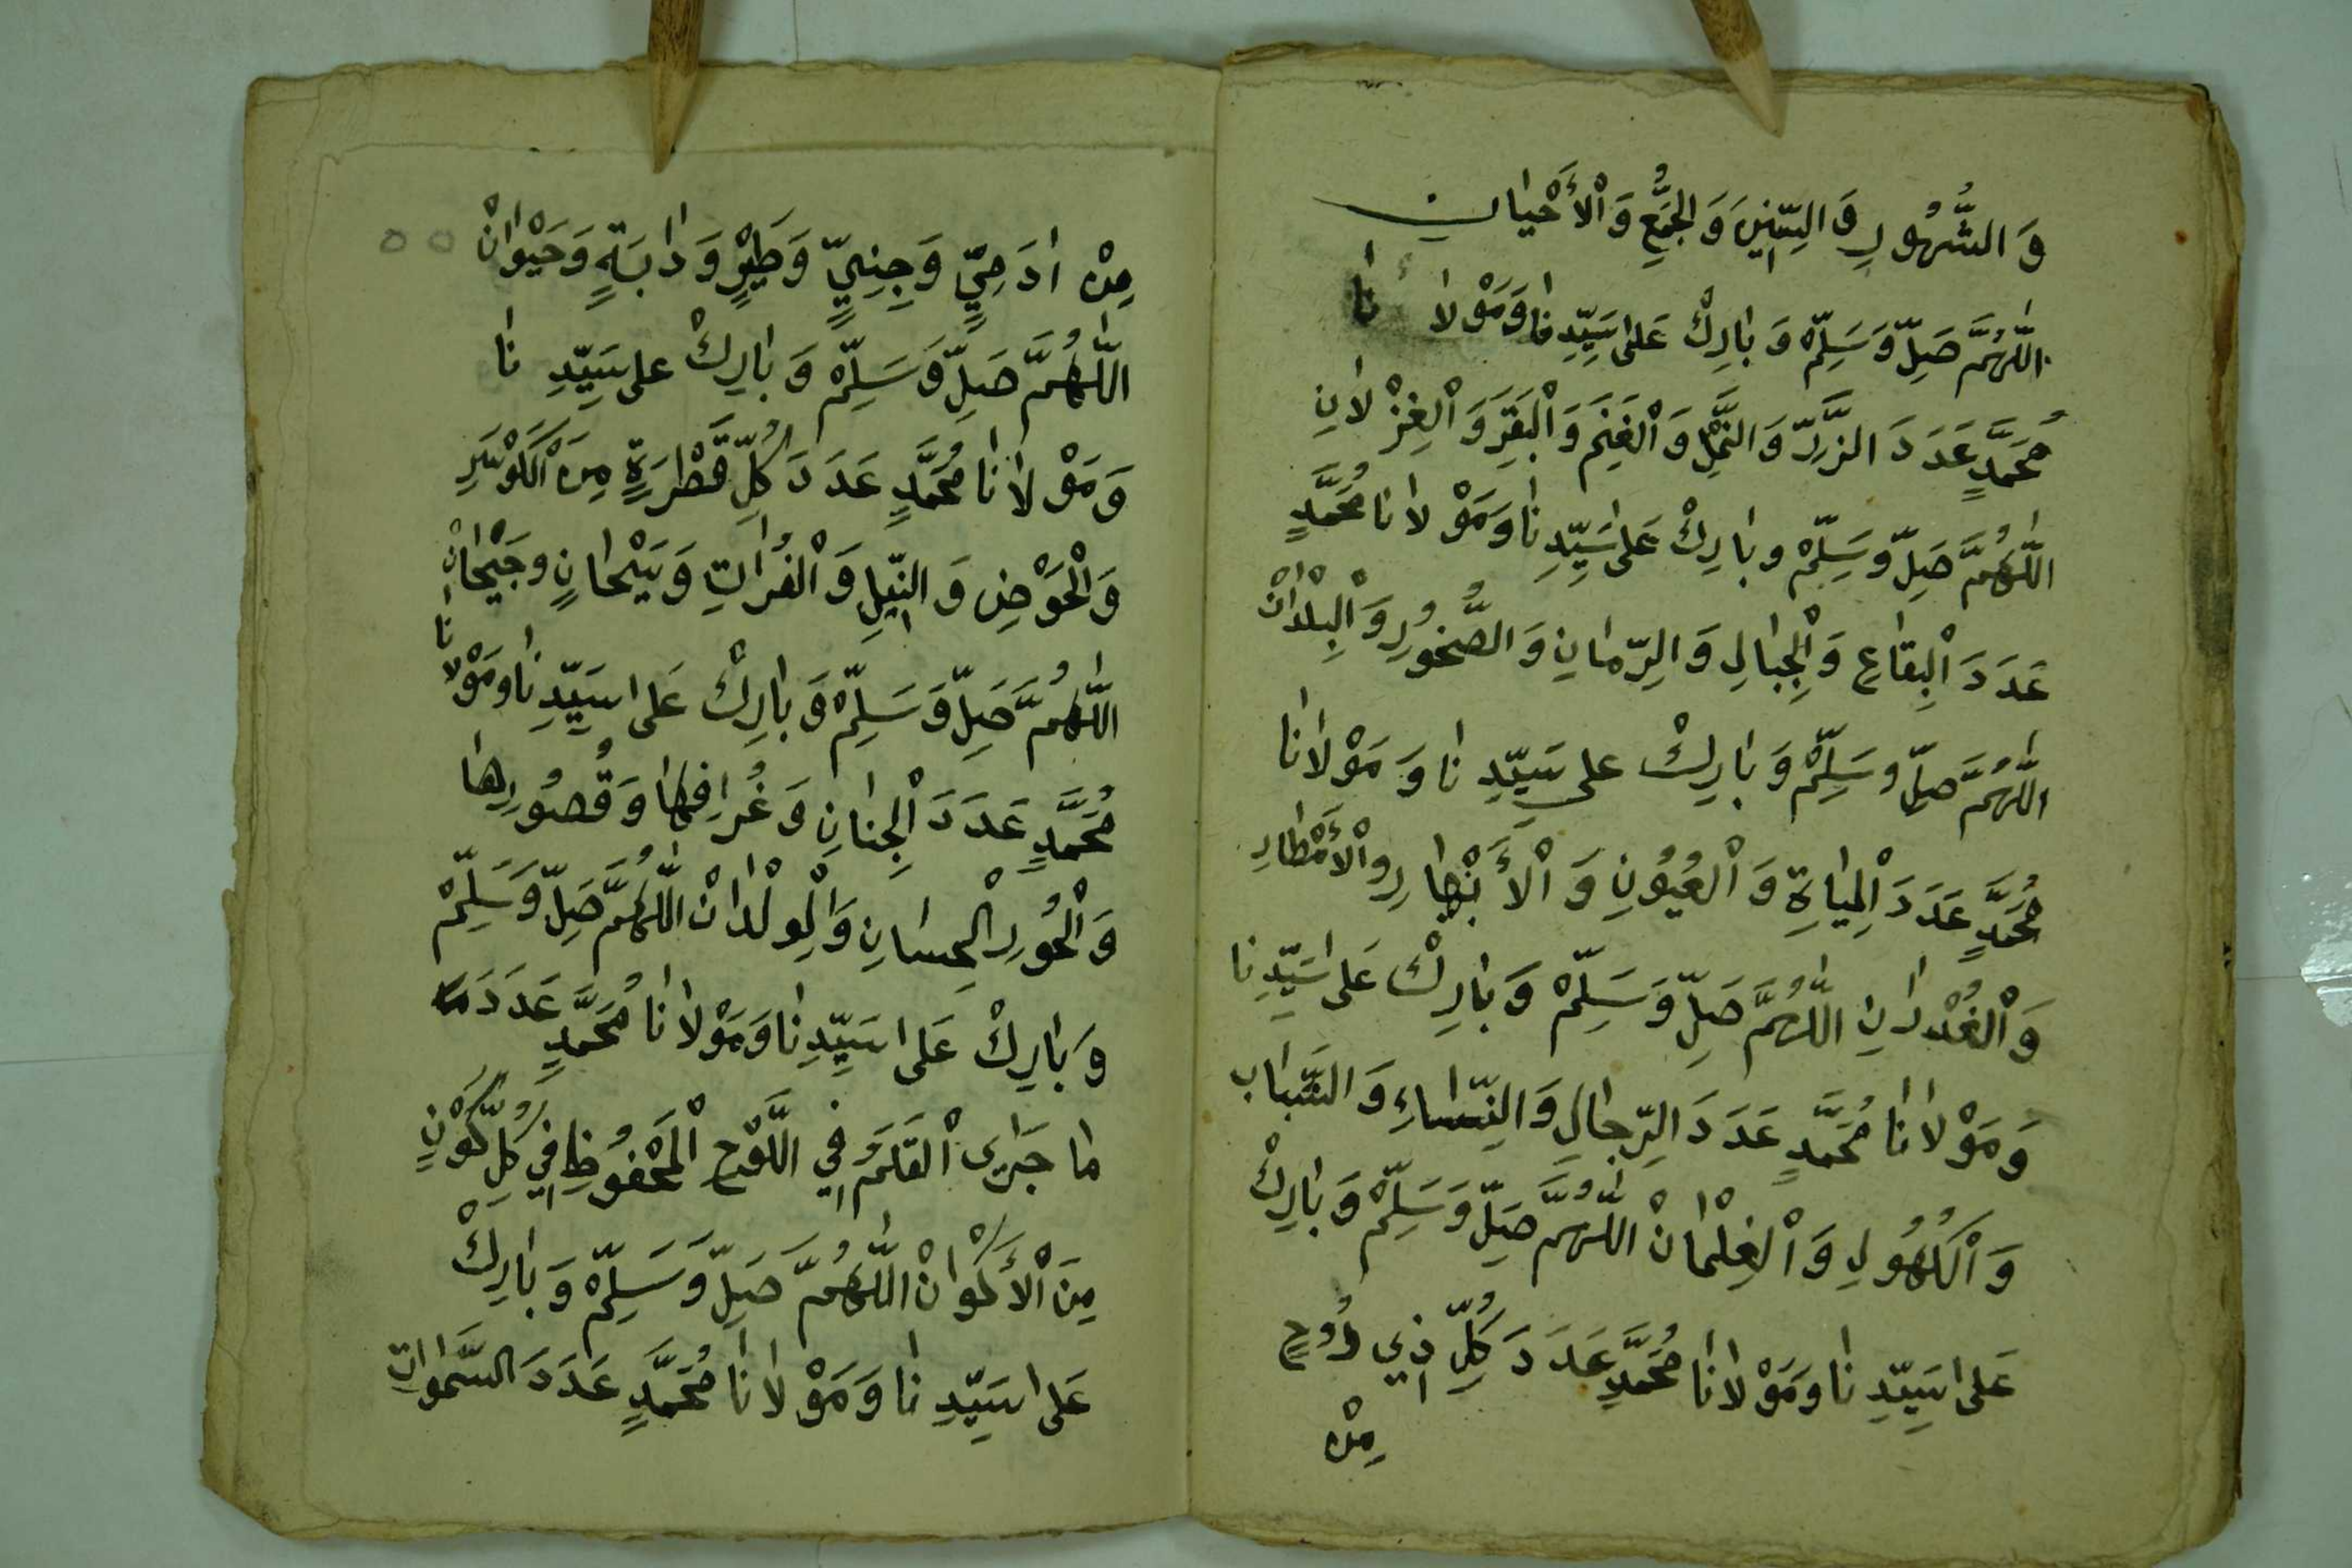 وَ الشُّهُورِ وَ السِّنِينَ وَ الْجُمَعِ وَ الْأَحْيانِ
اللّٰهُمَّ صَلِّ وَسَلِّمْ وَ بارِكْ عَلى سَيِّدِنا وَمَوْلا نا
مُحَمَّدٍ عَدَدَ الزَّرِّ وَ النَّمْلِ وَ الْغَنَمِ وَ الْبَقَرِ وَ الْغِزْلانِ
اللّٰهُمَّ صَلِّ وَسَلِّمْ وبارِكْ عَلى سَيِّدِنا وَمَوْلانا مُحَمَّدٍ
عَدَدَ الْبِقاعِ وَ الْجِبالِ وَ الرِّمانِ وَ الصُّخُورِ وَ الْبِلْدانْ
اللّٰهُمَّ صَلِّ وسَلِّمْ وَ بارِكْ على سَيِّدِنا وَ مَوْلانا
مُحَمَّدٍ عَدَدَ الْمِياةِ وَ الْعُيُونِ وَ الْأَنْهارِ والْأَمْطارِ
وَ الْغُدْرانِ اللّٰهُمَّ صَلِّ وَسَلِّمْ وَ بارِكْ عَلى سَيِّدِنا
وَمَوْلانا مُحَمَّدٍ عَدَدَ الرِّجالِ وَ النِّساءِ وَ الشَّبابِ
وَ الْكُهُولِ وَ الْغِلْمانْ اللّٰهُمَّ صَلِّ وَسَلِّمْ وَ بارِكْ
عَلى سَيِّدِنا ومَوْلانا مُحَمَّدٍ عَدَدَ كُلِّ ذِي رُوحٍ
مِنْ
مِنْ ادَمِيٍّ وَجِنِّيٍّ وَطَيْرٍ وَدابَةٍ وَحَيْوانْ
اللّٰهُمَّ صَلِّ وَسَلِّمْ وَ بارِكْ على سَيِّدِ نا
وَمَوْلانا مُحَمَّدٍ عَدَدَ كُلِّ قَطْرَةٍ مِنَ الْكَوْثَرِ
وَالْحَوْضِ وَ النِّيلِ وَ الْفُراتِ وَ سَيْحانٍ وجَيْحانْ
اللّٰهُمَّ صَلِّ وَسَلِّمْ وَ بارِكْ عَلى سَيِّدِنا ومَوْلانا
مُحَمَّدٍ عَدَدَ الْجِنانِ وَ غُرافِها وَ قُصُورِها
وَ الْحُورِ الْحِسانِ وَ الْوِلْدانْ اللّٰهُمَّ صَلِّ وَسَلِّمْ
وَ بارِكْ عَلى سَيِّدِنا وَمَوْلانا مُحَمَّدٍ عَدَدَ ما
ما جَرَى الْقَلَمُ فِي اللَّوْحِ الْمَحْفُوظِ فِي كُلِّ كَوْنٍ
مِنَ الْأَكْوانْ اللّٰهُمَّ صَلِّ وَسَلِّمْ وَ بارِكْ
عَلى سَيِّدِنا وَ مَوْلانا مُحَمَّدٍ عَدَدَ السَّمٰواتِ